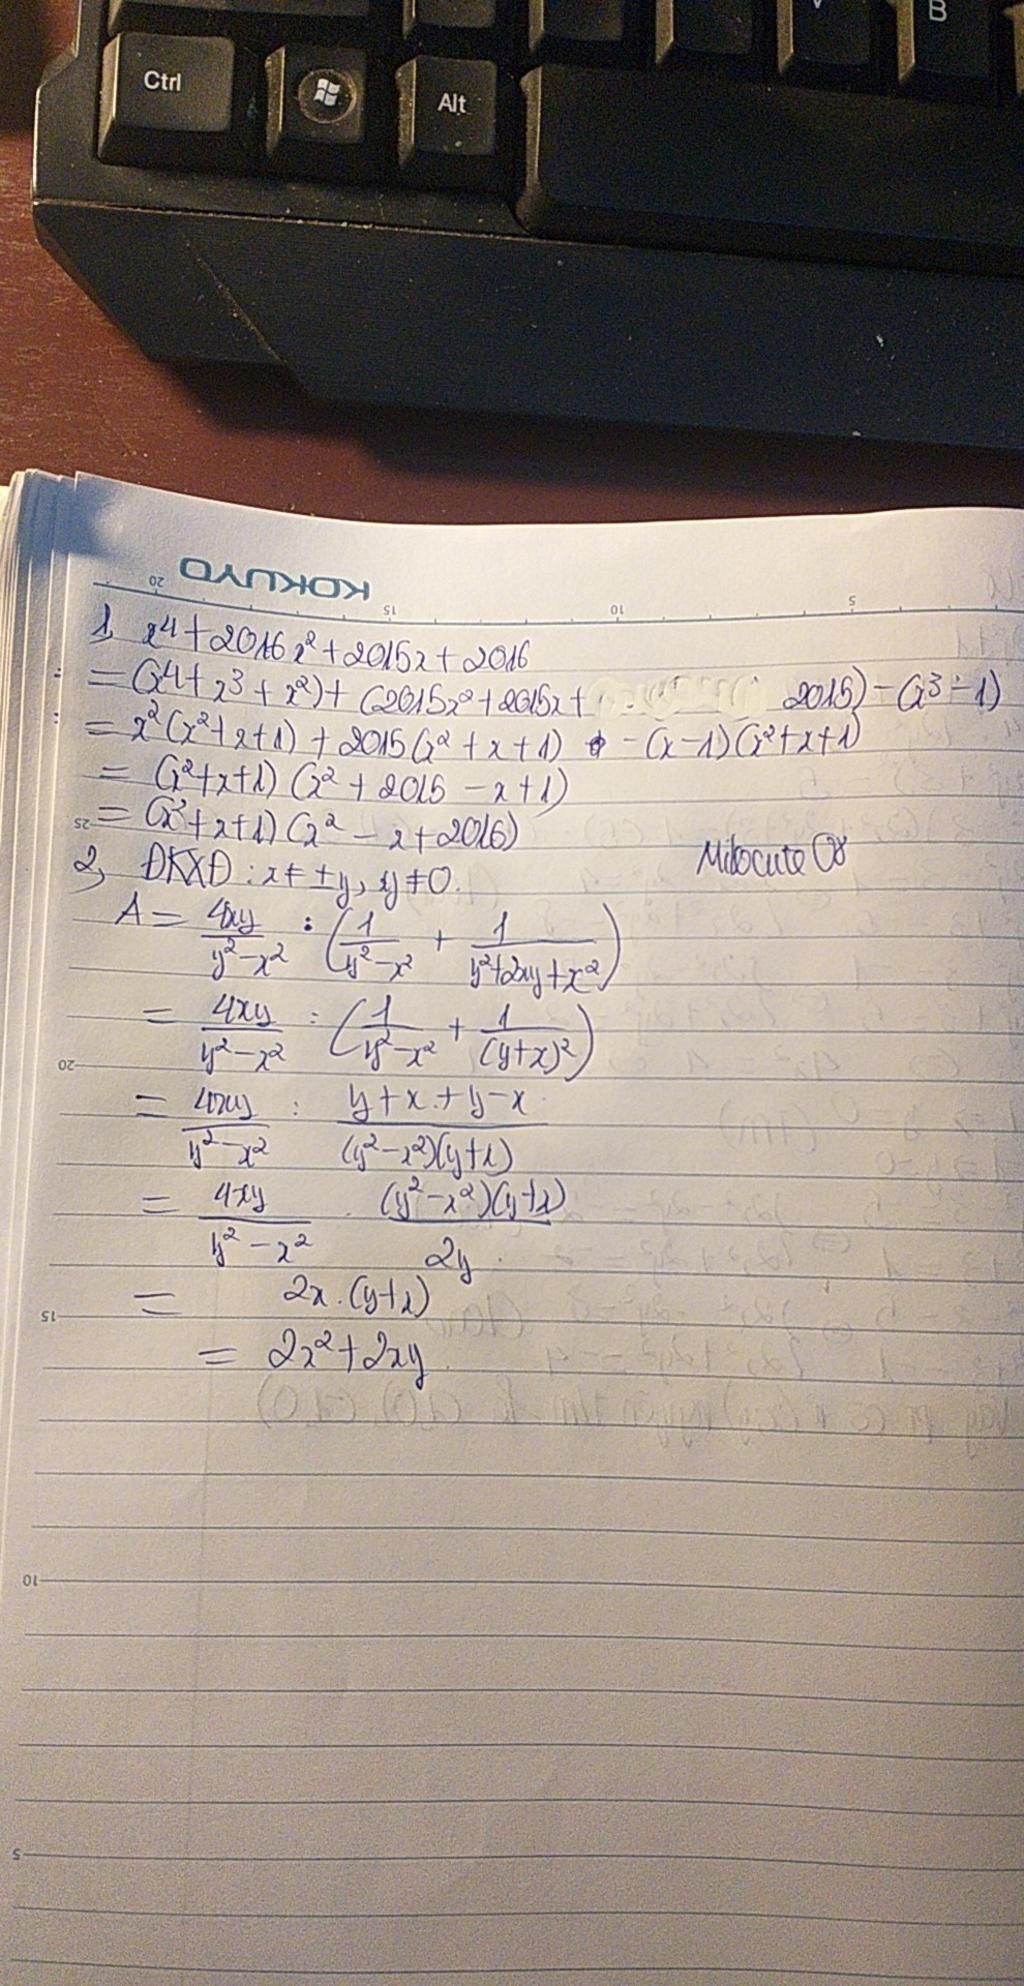 B
Ctrl
Alt
KOKUYO
20 15 10 5
1, x⁴ + 2016x² + 2015x + 2016
= (x⁴ + x³ + x²) + (2015x² + 2015x + 2015) - (x³ - 1)
= x²(x² + x + 1) + 2015(x² + x + 1) - (x - 1)(x² + x + 1)
= (x² + x + 1)(x² + 2015 - x + 1)
= (x² + x + 1)(x² - x + 2016)
25
Mitocute 08
2, ĐKXĐ : x ≠ ±y, y ≠ 0.
A = 4xy/(y² - x²) : (1/(y² - x²) + 1/(y² + 2xy + x²))
= 4xy/(y² - x²) : (1/(y² - x²) + 1/(y + x)²)
20
= 4xy/(y² - x²) : (y + x + y - x)/((y² - x²)(y + x))
= 4xy/(y² - x²) . (y² - x²)(y + x)/2y
= 2x . (y + x)
15
= 2x² + 2xy
10
5